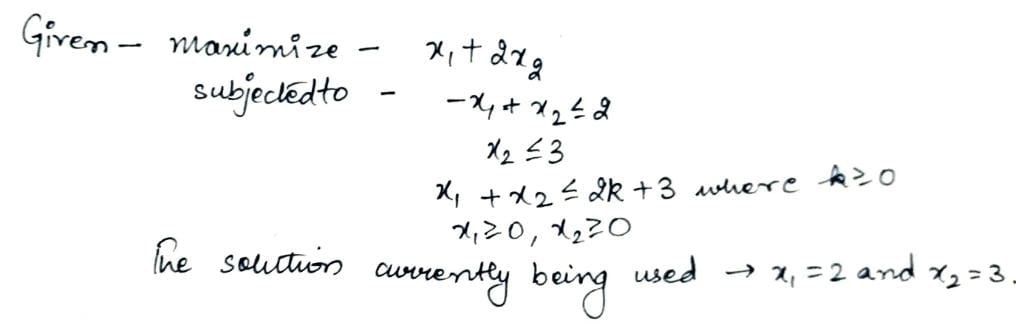 Given - maximize - x₁ + 2x₂
subjected to - -x₁ + x₂ ≤ 2
x₂ ≤ 3
x₁ + x₂ ≤ 2k + 3 where k ≥ 0
x₁ ≥ 0, x₂ ≥ 0
The solution currently being used → x₁ = 2 and x₂ = 3.